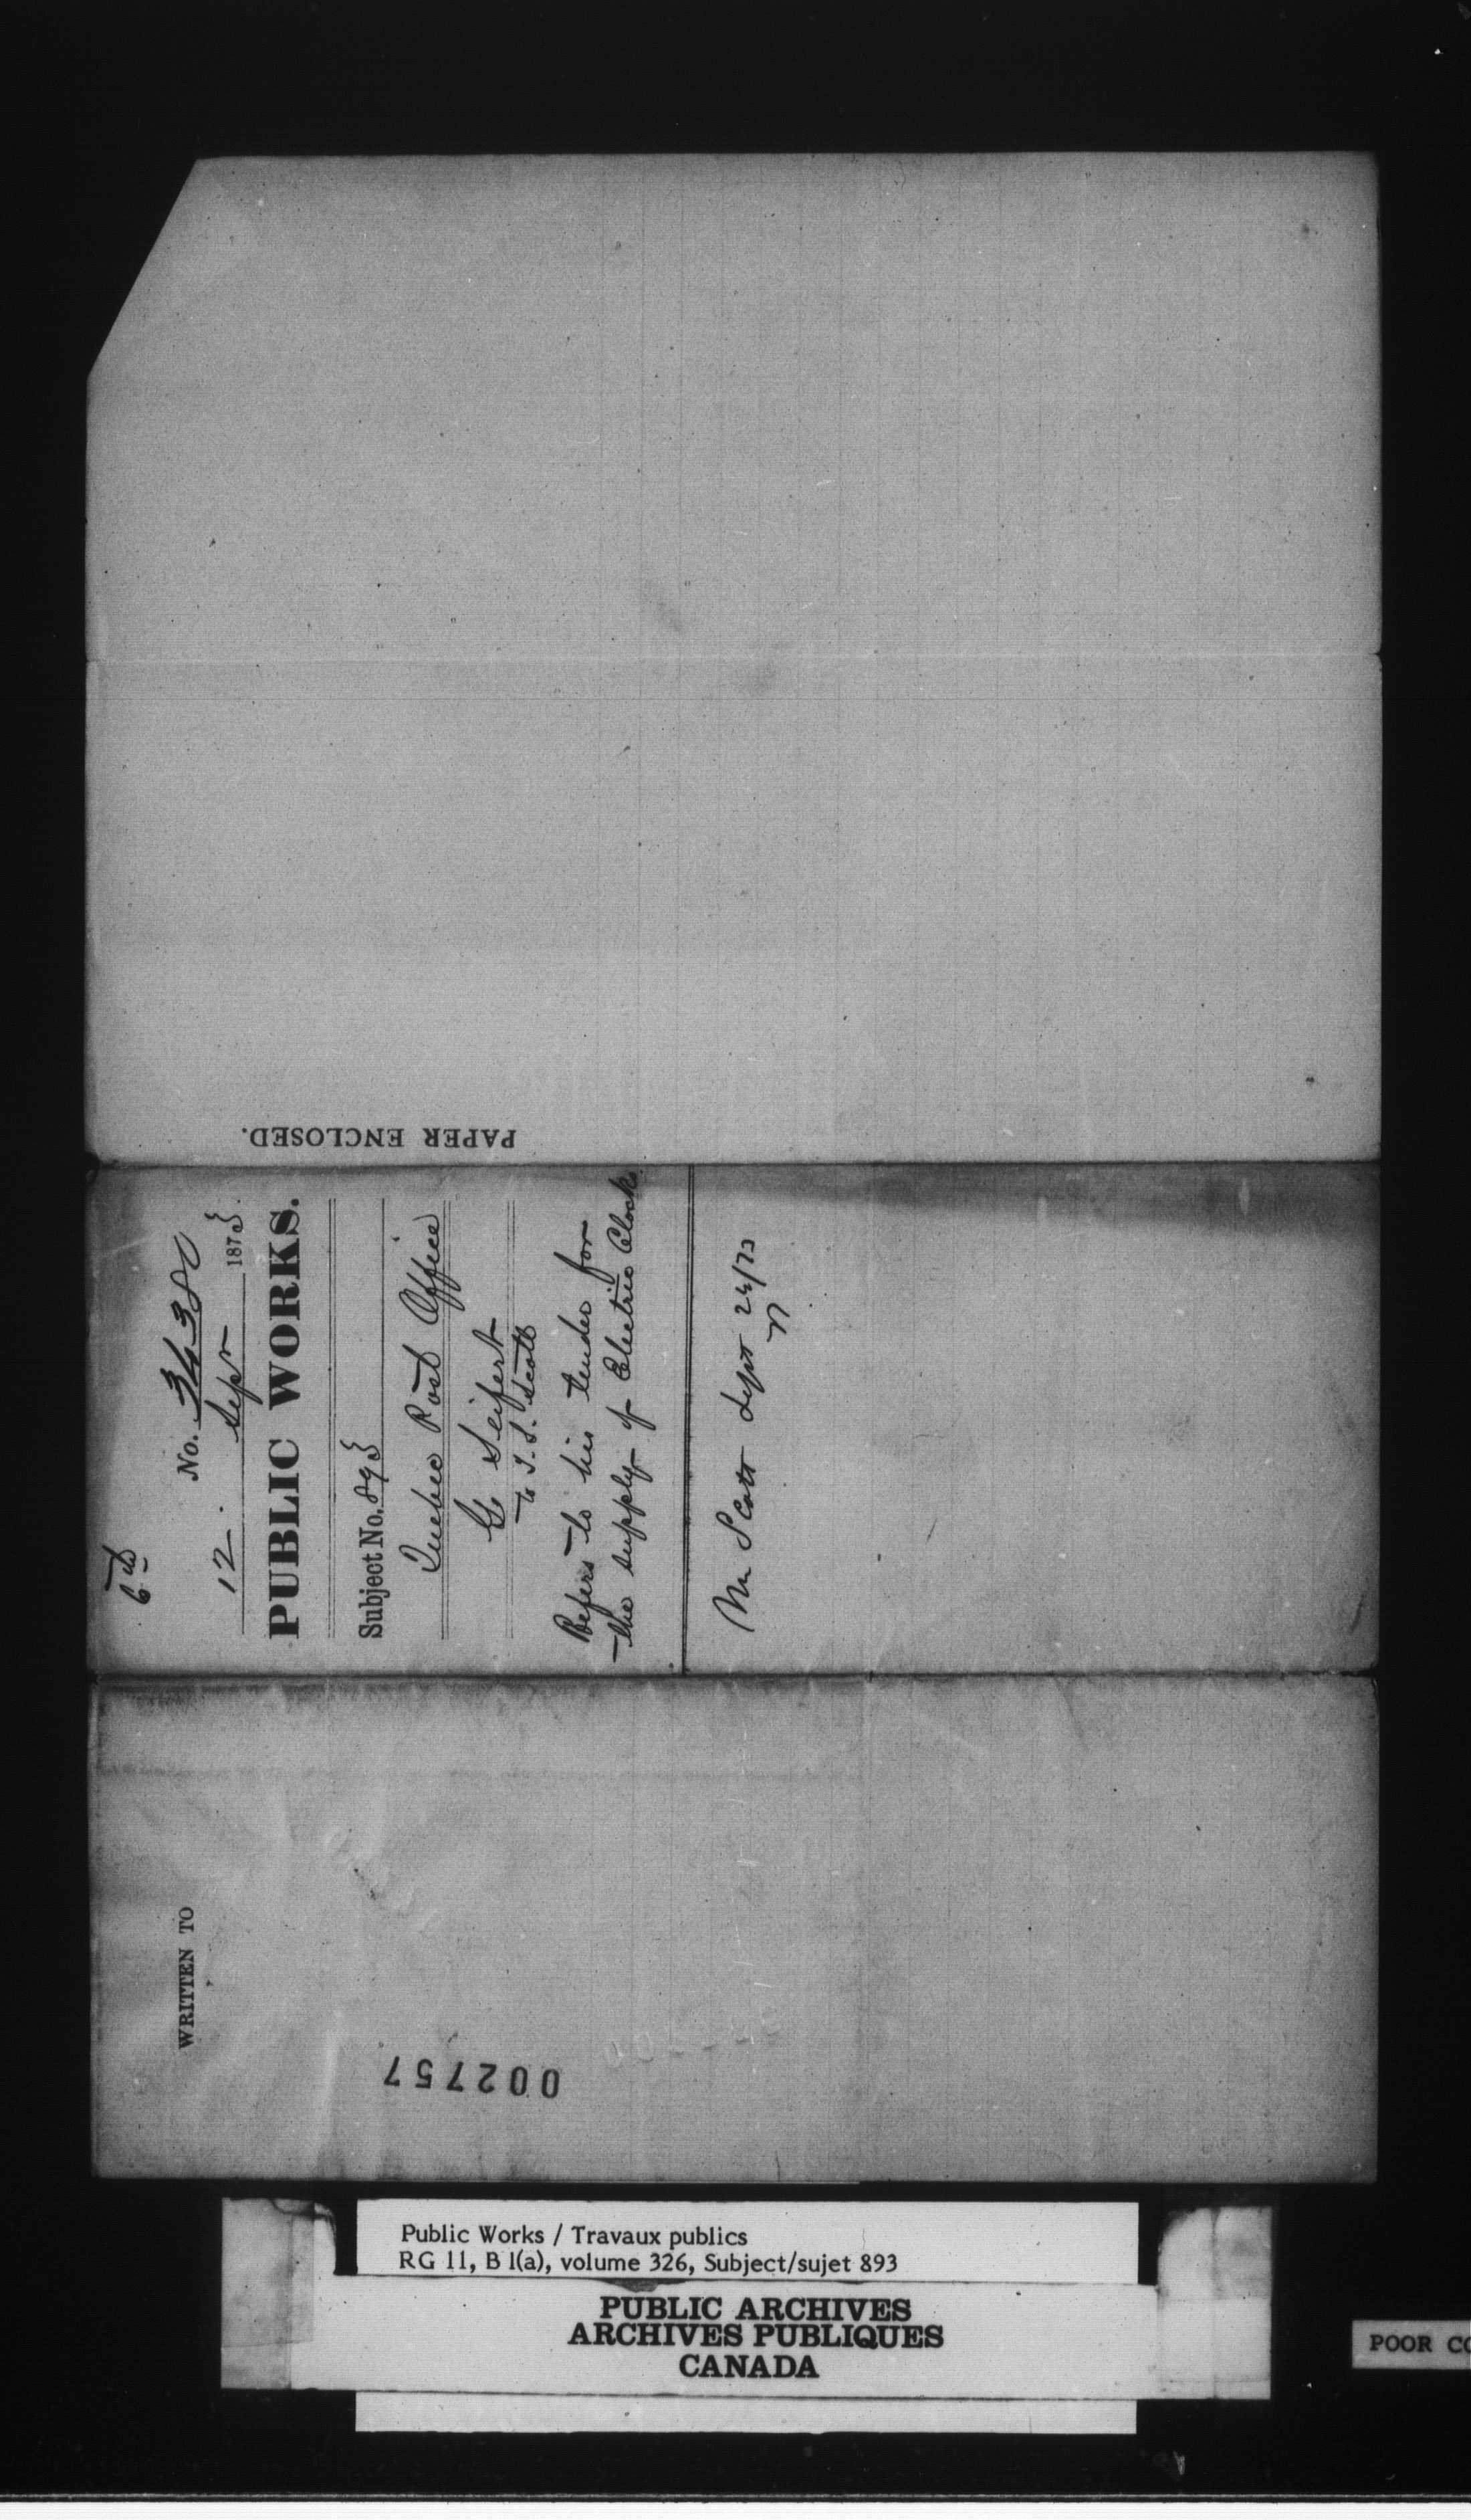 PAPER ENCLOSED.
No. 34380
12 Sepr 1873.
PUBLIC WORKS.
Subject No. 893
Quebec Post Office
G Seifert
to T. S. Scott
Refers to his tender for
the supply of Electric Clocks
Mr Scott Sept 24/73
WRITTEN TO
002757
Public Works / Travaux publics
RG 11, B 1(a), volume 326, Subject/sujet 893
PUBLIC ARCHIVES
ARCHIVES PUBLIQUES
CANADA
POOR CO